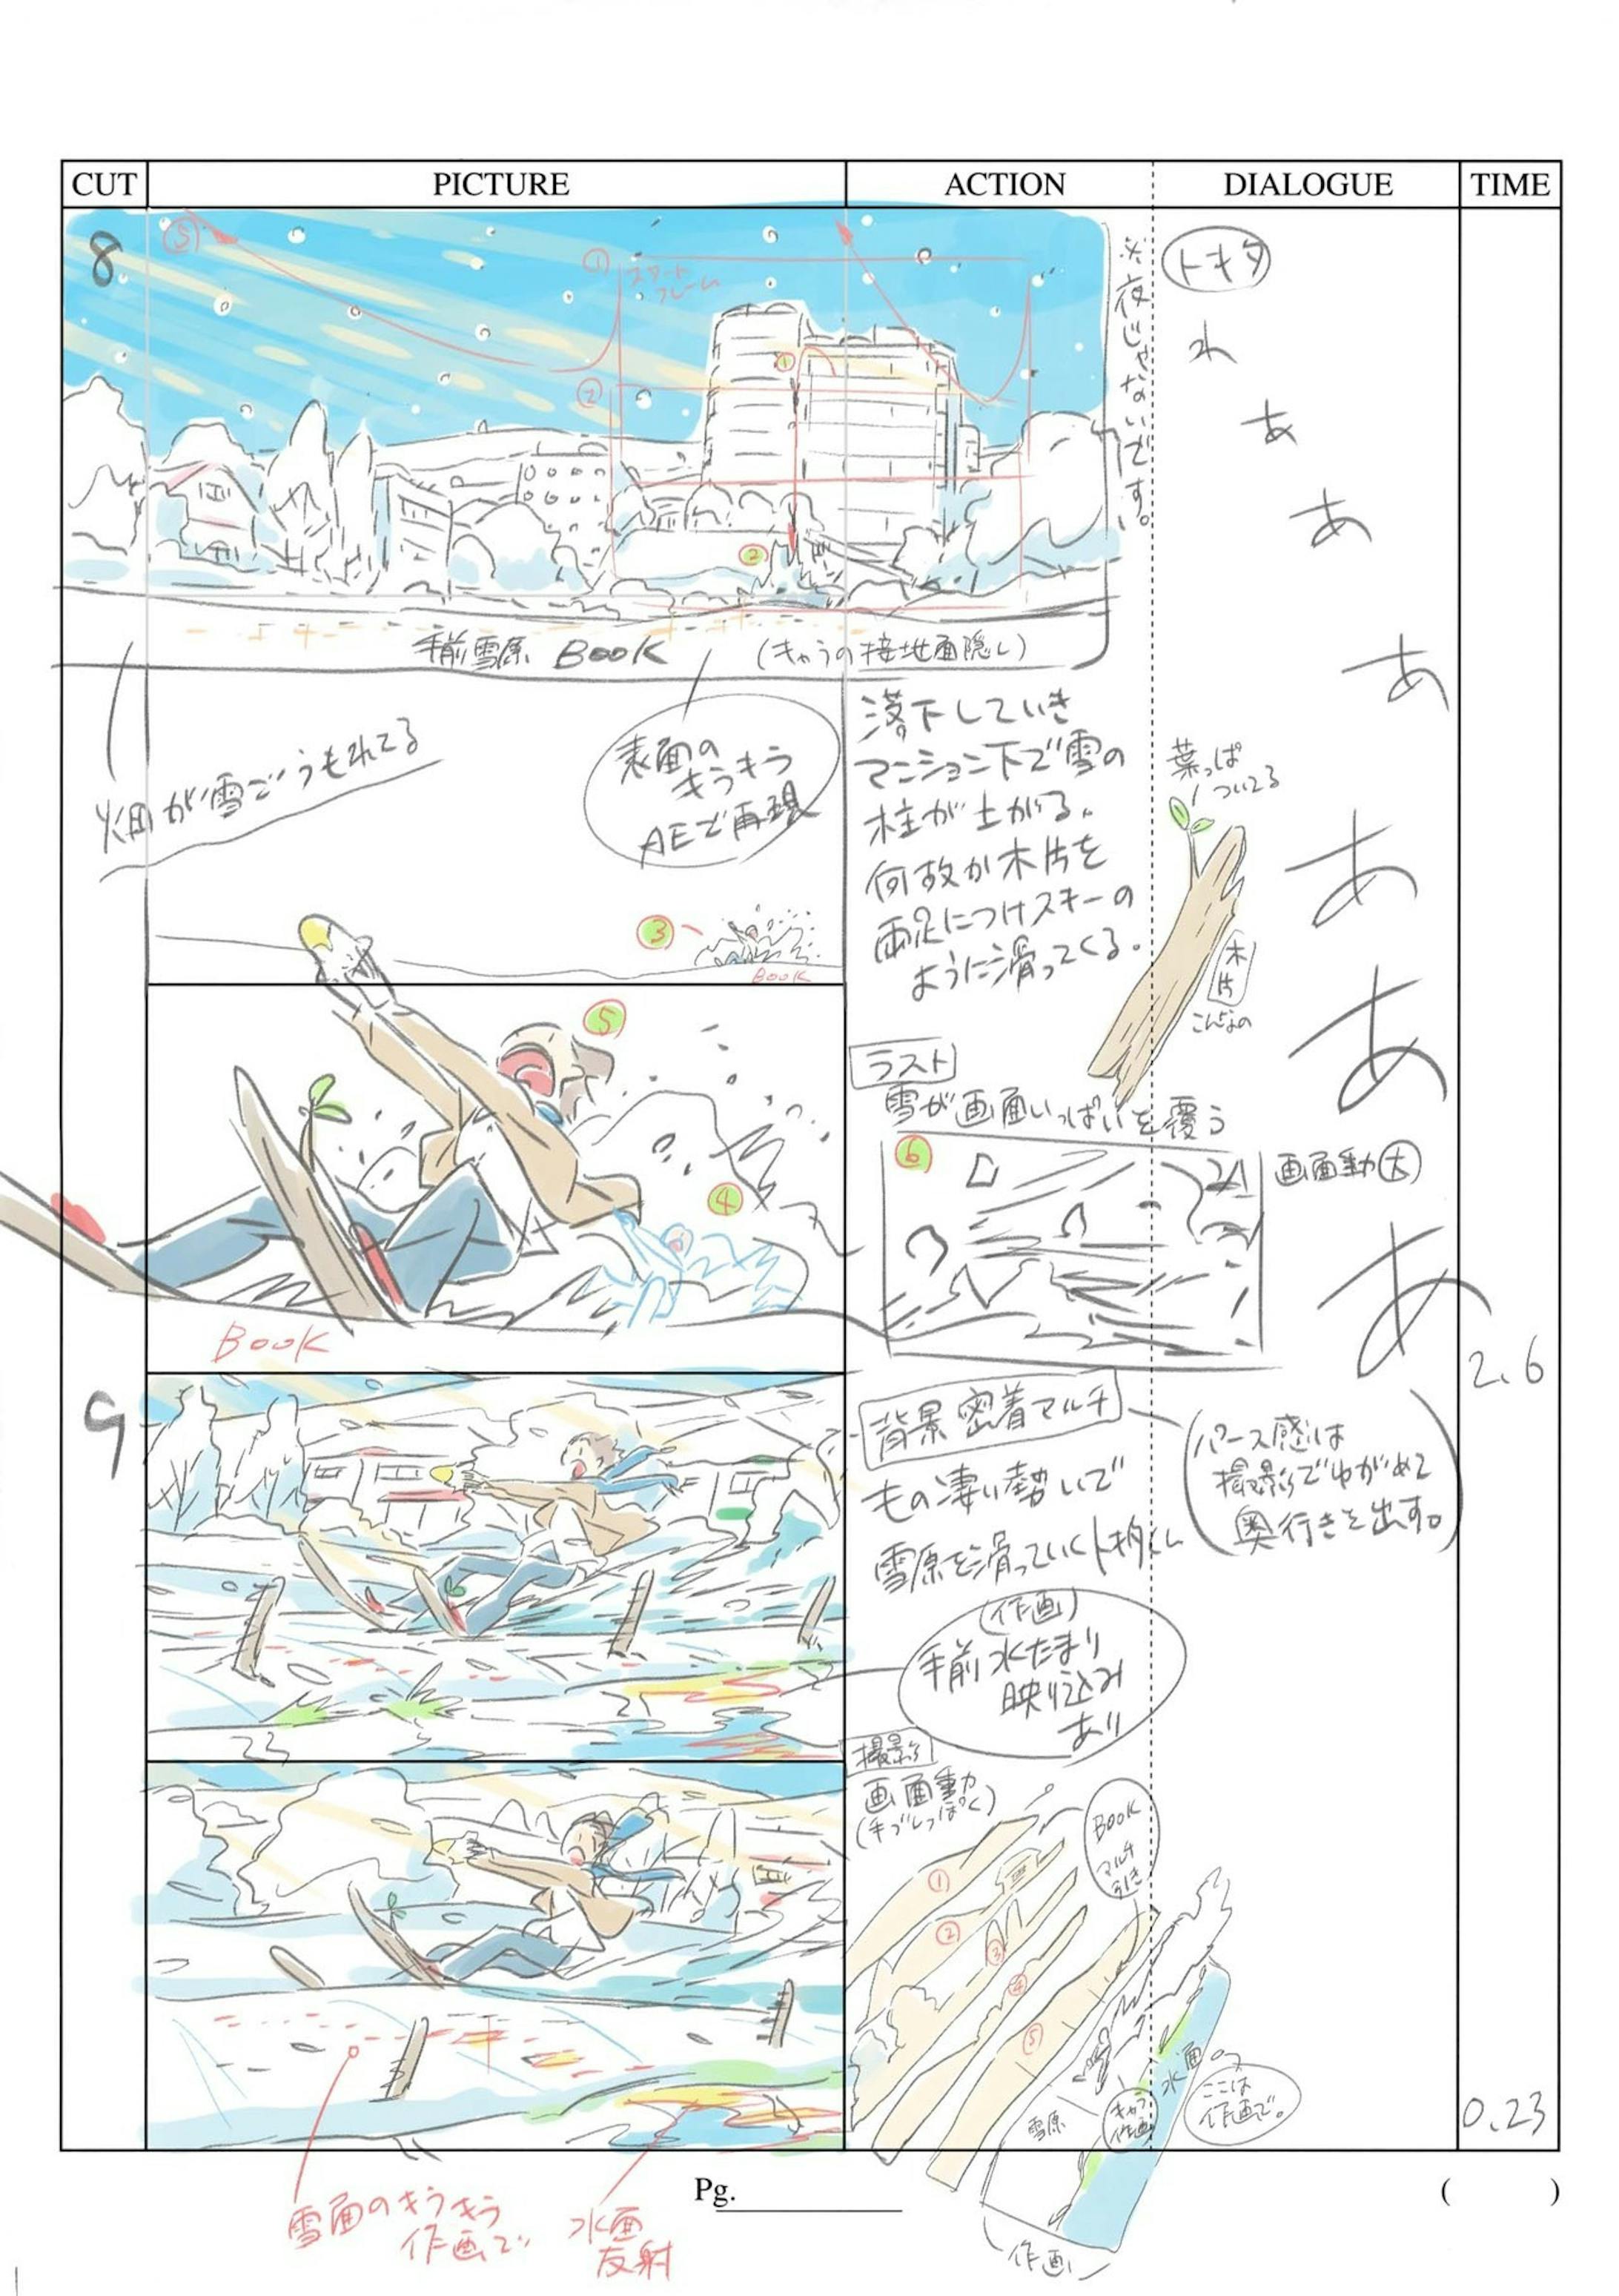 CUT
PICTURE
ACTION
DIALOGUE
TIME
8
⑤
①
スタート
フレーム
②
①
②
手前雪原 BOOK
(キャラの接地面隠し)
※夜じゃないです。
トキタ
わ
あ
あ
あ
あ
あ
あ
畑が雪でうもれてる
表面の
キラキラ
AEで再現
③
BOOK
落下していき
マンション下で雪の
柱が上がる。
何故か木片を
両足につけスキーの
ように滑ってくる。
葉っぱ
ついてる
木片
こんなの
⑤
④
BOOK
ラスト
雪が画面いっぱいを覆う
⑥
画面動大
2.6
9
背景密着マルチ
もの凄い勢いで
雪原を滑っていくトキタくん
(パース感は
撮影でゆがめて
奥行きを出す。)
(作画)
手前水たまり
映り込み
あり
撮影
画面動
(手ブレっぽく)
BOOK
マルチ
引き
①
②
③
④
⑤
雪原
キャラ
作画
水面
ここは
作画で。
作画
0.23
雪面のキラキラ
作画で
水面
反射
Pg.
( )